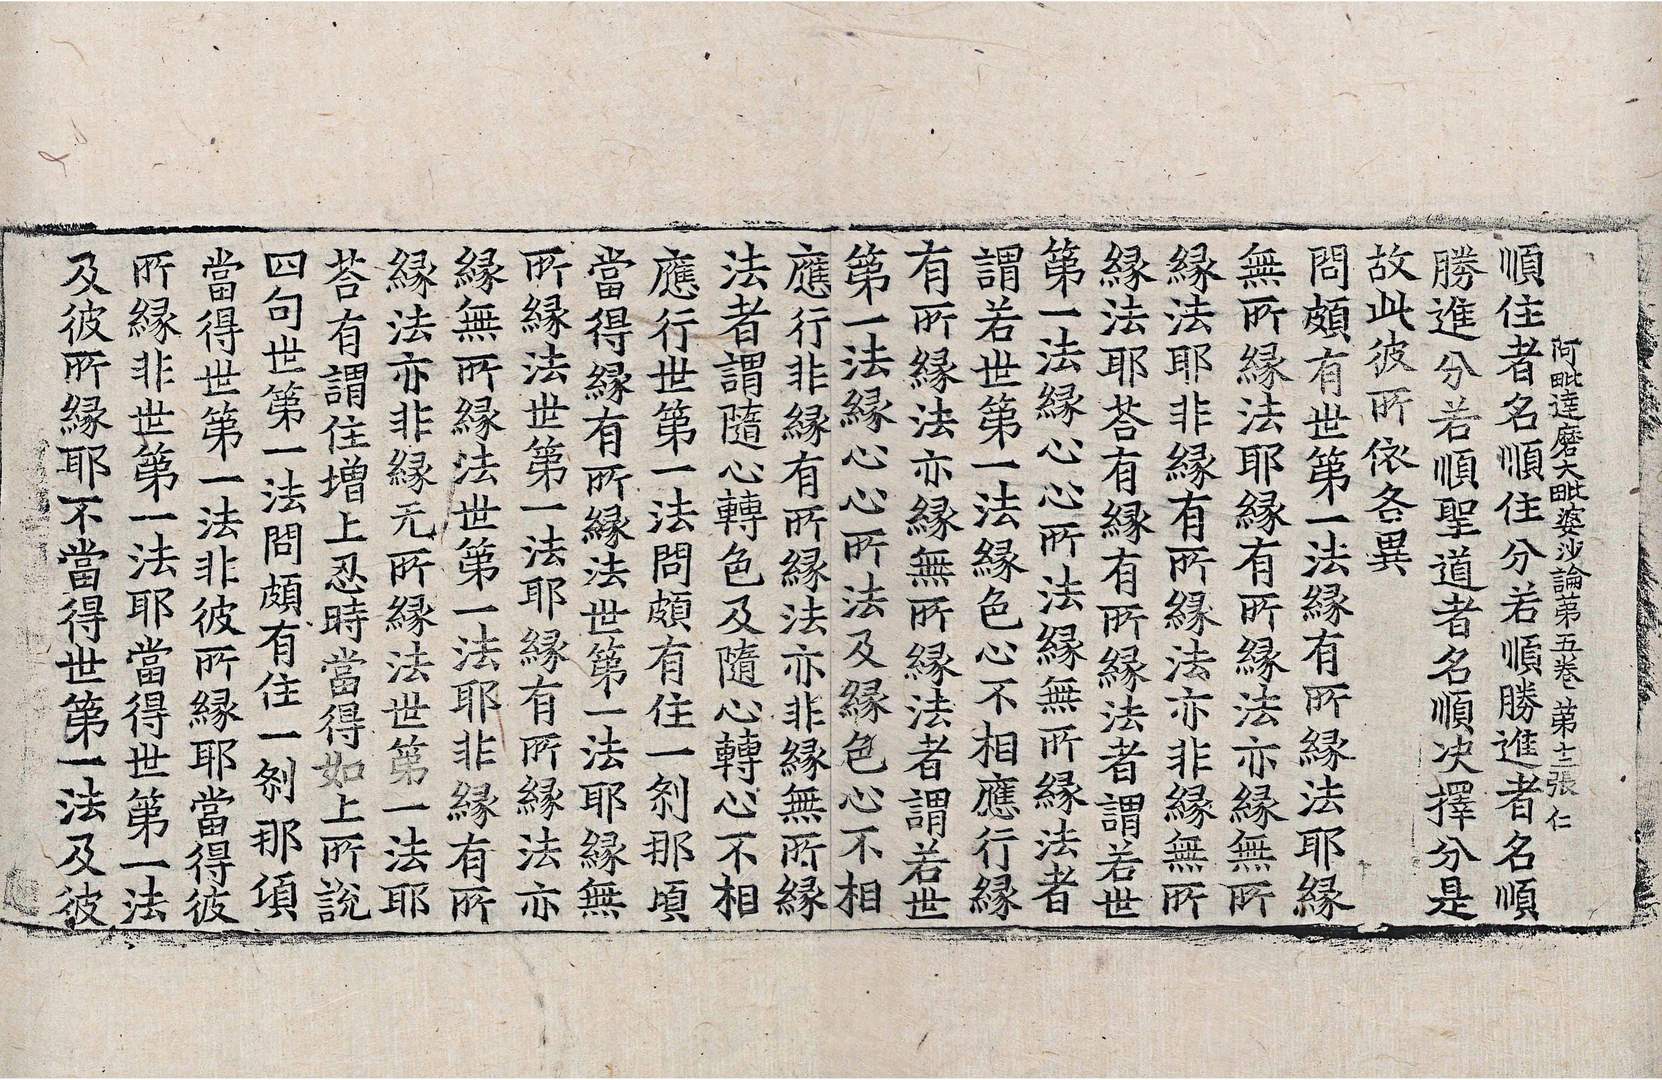 阿毗達磨大毗婆沙論第五卷第十二張仁
順住者名順住分若順勝進者名順
勝進分若順聖道者名順决擇分是
故此彼所依各異
問頗有世第一法緣有所緣法耶緣
無所緣法耶緣有所緣法亦緣無所
緣法耶非緣有所緣法亦非緣無所
緣法耶荅有緣有所緣法者謂若世
第一法緣心心所法緣無所緣法者
謂若世第一法緣色心不相應行緣
有所緣法亦緣無所緣法者謂若世
第一法緣心心所法及緣色心不相
應行非緣有所緣法亦非緣無所緣
法者謂隨心轉色及隨心轉心不相
應行世第一法問頗有住一刹那頃
當得緣有所緣法世第一法耶緣無
所緣法世第一法耶緣有所緣法亦
緣無所緣法世第一法耶非緣有所
緣法亦非緣无所緣法世第一法耶
荅有謂住增上忍時當得如上所說
四句世第一法問頗有住一刹那頃
當得世第一法非彼所緣耶當得彼
所緣非世第一法耶當得世第一法
及彼所緣耶不當得世第一法及彼